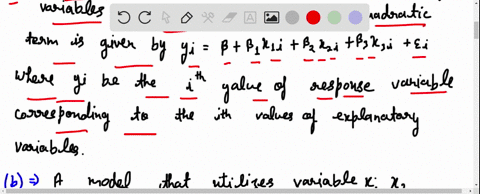 variables quadratic
term is given by yi = β + β1 x1i + β2 x2i + β3 x3i + εi
where yi be the ith yalue of response variable
corresponding to the ith values of explanatory
variables.
(b) ⇒ A model that utilizes variable